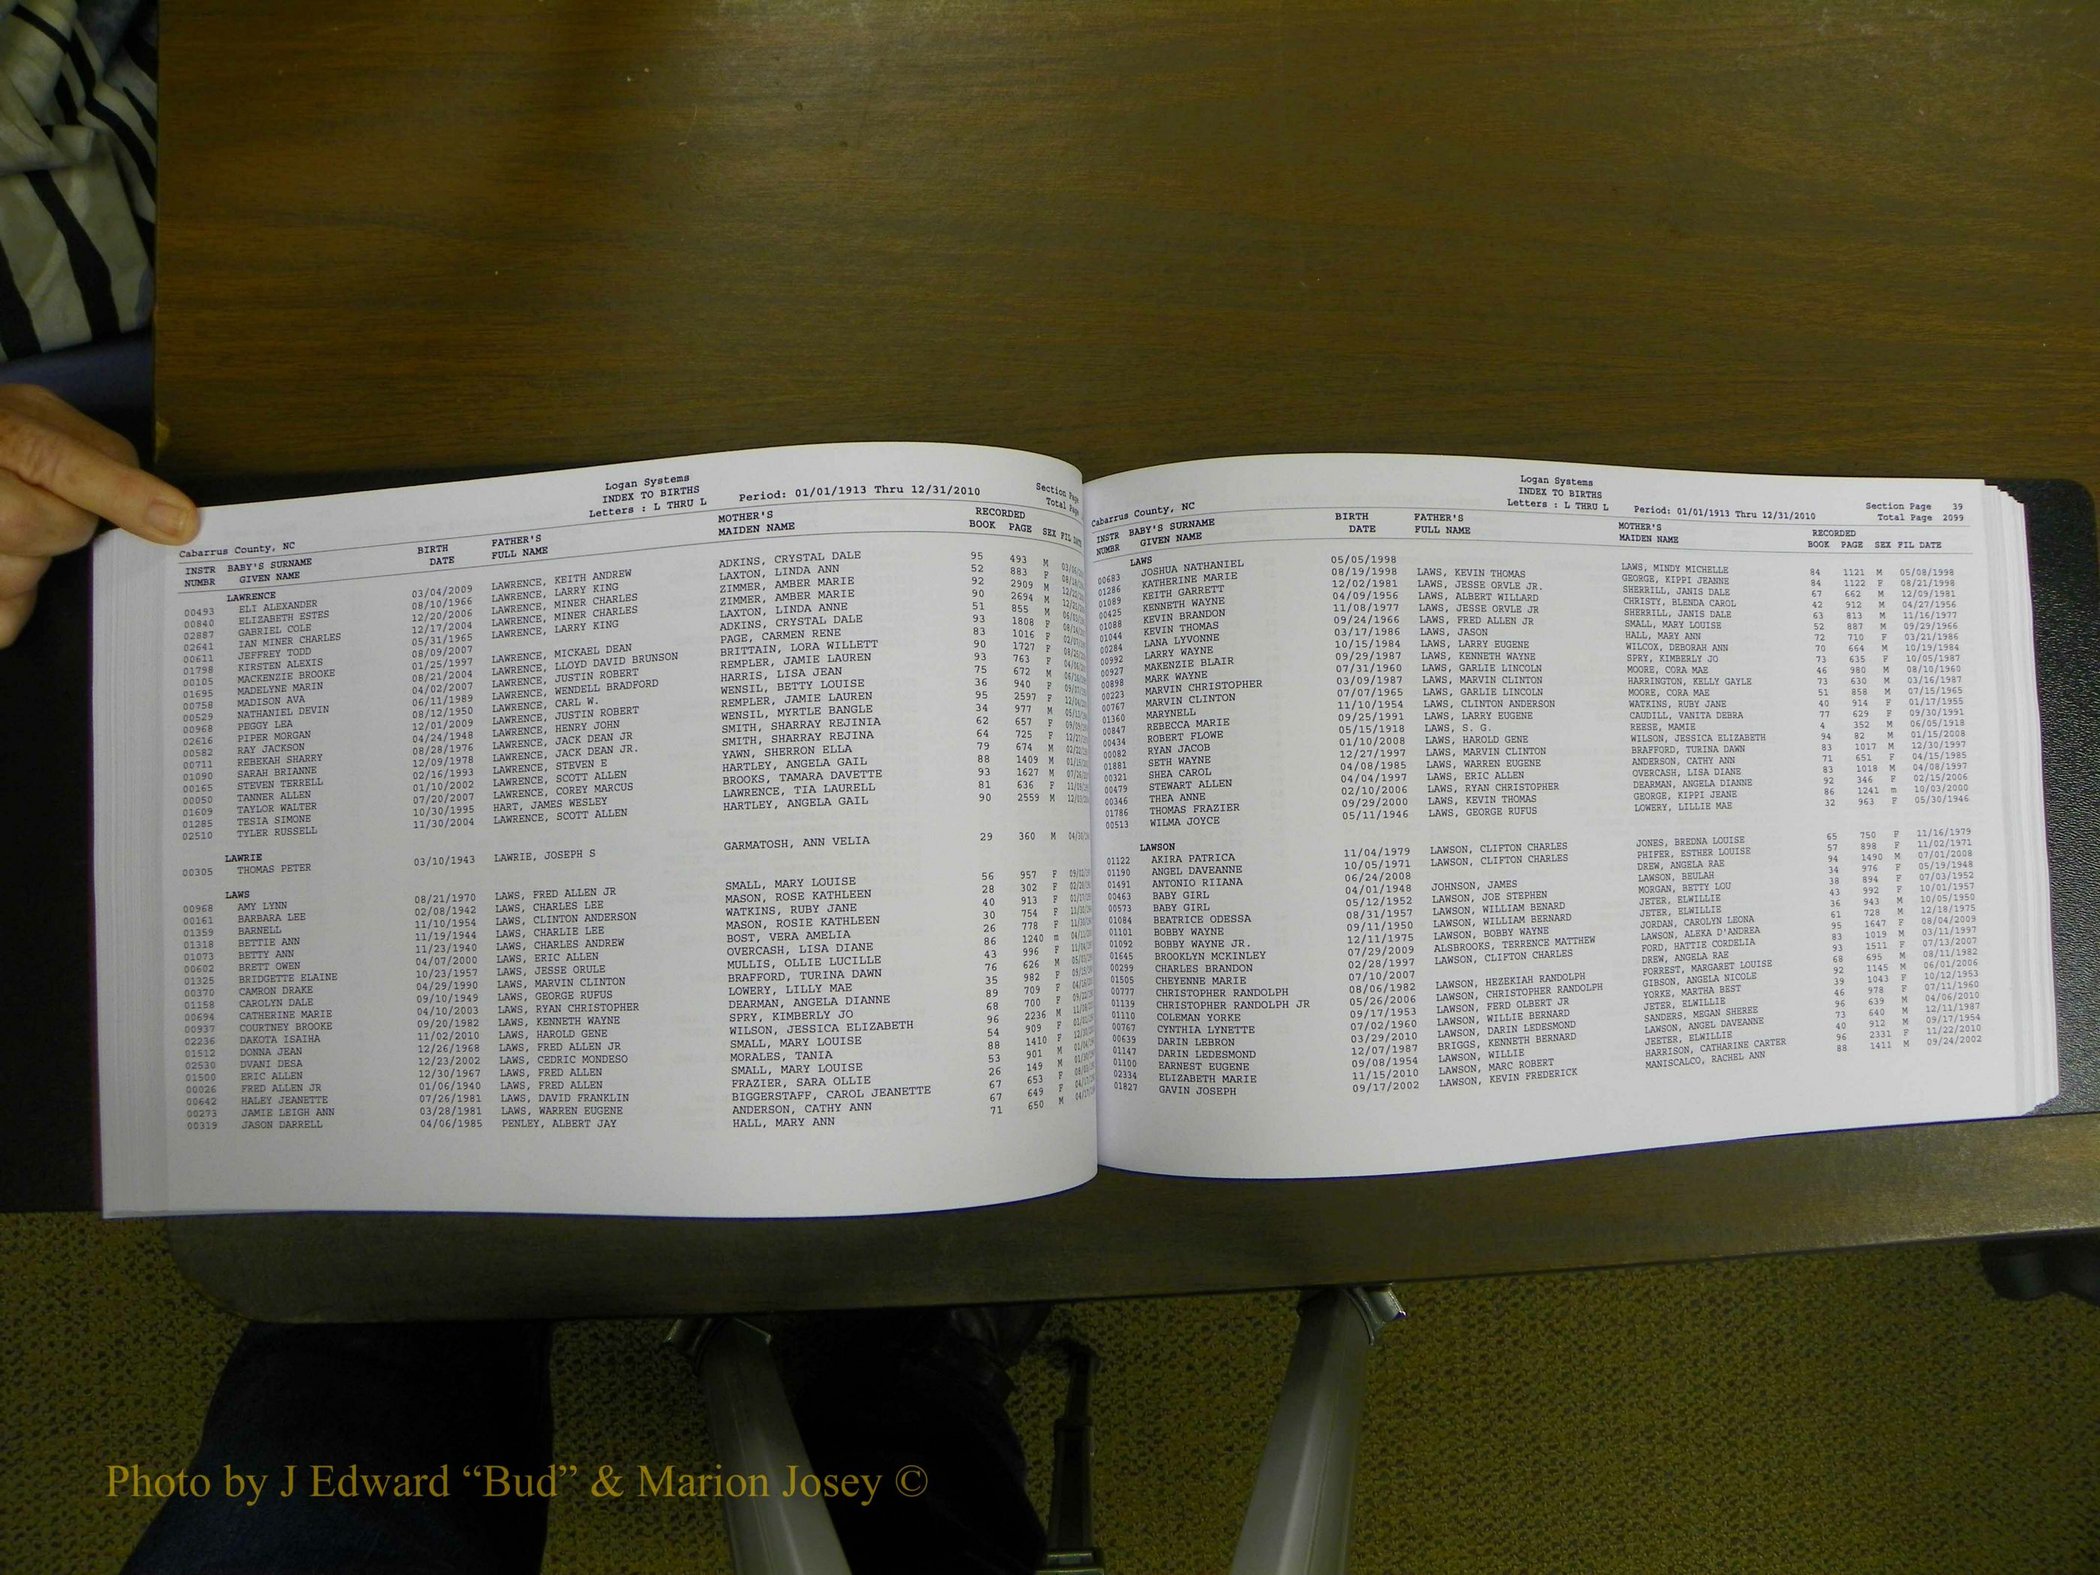 Logan Systems
INDEX TO BIRTHS
Letters : L THRU L
Period: 01/01/1913 Thru 12/31/2010
Section Page
Total Page
Cabarrus County, NC
INSTR BABY'S SURNAME BIRTH FATHER'S MOTHER'S RECORDED
NUMBR GIVEN NAME DATE FULL NAME MAIDEN NAME BOOK PAGE SEX FIL DATE
LAWRENCE
00493 ELI ALEXANDER 03/04/2009 LAWRENCE, KEITH ANDREW ADKINS, CRYSTAL DALE 95 493 M
00840 ELIZABETH ESTES 08/10/1966 LAWRENCE, LARRY KING LAXTON, LINDA ANN 52 883 F
02887 GABRIEL COLE 12/20/2006 LAWRENCE, MINER CHARLES ZIMMER, AMBER MARIE 92 2909 M
02641 IAN MINER CHARLES 12/17/2004 LAWRENCE, MINER CHARLES ZIMMER, AMBER MARIE 90 2694 M
00611 JEFFREY TODD 05/31/1965 LAWRENCE, LARRY KING LAXTON, LINDA ANNE 51 855 M
01798 KIRSTEN ALEXIS 08/09/2007 ADKINS, CRYSTAL DALE 93 1808 F
00105 MACKENZIE BROOKE 01/25/1997 LAWRENCE, MICKAEL DEAN PAGE, CARMEN RENE 83 1016 F
01695 MADELYNE MARIN 08/21/2004 LAWRENCE, LLOYD DAVID BRUNSON BRITTAIN, LORA WILLETT 90 1727 F
00758 MADISON AVA 04/02/2007 LAWRENCE, JUSTIN ROBERT REMPLER, JAMIE LAUREN 93 763 F
00529 NATHANIEL DEVIN 06/11/1989 LAWRENCE, WENDELL BRADFORD HARRIS, LISA JEAN 75 672 M
00968 PEGGY LEA 08/12/1950 LAWRENCE, CARL W. WENSIL, BETTY LOUISE 36 940 F
02616 PIPER MORGAN 12/01/2009 LAWRENCE, JUSTIN ROBERT REMPLER, JAMIE LAUREN 95 2597 F
00582 RAY JACKSON 04/24/1948 LAWRENCE, HENRY JOHN WENSIL, MYRTLE BANGLE 34 977 M
00711 REBEKAH SHARRY 08/28/1976 LAWRENCE, JACK DEAN JR SMITH, SHARRAY REJINIA 62 657 F
01090 SARAH BRIANNE 12/09/1978 LAWRENCE, JACK DEAN JR. SMITH, SHARRAY REJINA 64 725 F
00165 STEVEN TERRELL 02/16/1993 LAWRENCE, STEVEN E YAWN, SHERRON ELLA 79 674 M
00050 TANNER ALLEN 01/10/2002 LAWRENCE, SCOTT ALLEN HARTLEY, ANGELA GAIL 88 1409 M
01609 TAYLOR WALTER 07/20/2007 LAWRENCE, COREY MARCUS BROOKS, TAMARA DAVETTE 93 1627 M
01285 TESIA SIMONE 10/30/1995 HART, JAMES WESLEY LAWRENCE, TIA LAURELL 81 636 F
02510 TYLER RUSSELL 11/30/2004 LAWRENCE, SCOTT ALLEN HARTLEY, ANGELA GAIL 90 2559 M
LAWRIE
00305 THOMAS PETER 03/10/1943 LAWRIE, JOSEPH S GARMATOSH, ANN VELIA 29 360 M
LAWS
00968 AMY LYNN 08/21/1970 LAWS, FRED ALLEN JR SMALL, MARY LOUISE 56 957 F
00161 BARBARA LEE 02/08/1942 LAWS, CHARLES LEE MASON, ROSE KATHLEEN 28 302 F
01359 BARNELL 11/10/1954 LAWS, CLINTON ANDERSON WATKINS, RUBY JANE 40 913 F
01318 BETTIE ANN 11/19/1944 LAWS, CHARLIE LEE MASON, ROSIE KATHLEEN 30 754 F
01073 BETTY ANN 11/23/1940 LAWS, CHARLES ANDREW BOST, VERA AMELIA 26 778 F
00602 BRETT OWEN 04/07/2000 LAWS, ERIC ALLEN OVERCASH, LISA DIANE 86 1240 m
01325 BRIDGETTE ELAINE 10/23/1957 LAWS, JESSE ORULE MULLIS, OLLIE LUCILLE 43 996 F
00370 CAMRON DRAKE 04/29/1990 LAWS, MARVIN CLINTON BRAFFORD, TURINA DAWN 76 626 M
01158 CAROLYN DALE 09/10/1949 LAWS, GEORGE RUFUS LOWERY, LILLY MAE 35 982 F
00694 CATHERINE MARIE 04/10/2003 LAWS, RYAN CHRISTOPHER DEARMAN, ANGELA DIANNE 89 709 F
00937 COURTNEY BROOKE 09/20/1982 LAWS, KENNETH WAYNE SPRY, KIMBERLY JO 68 700 F
02236 DAKOTA ISAIHA 11/02/2010 LAWS, HAROLD GENE WILSON, JESSICA ELIZABETH 96 2236 M
01512 DONNA JEAN 12/26/1968 LAWS, FRED ALLEN JR SMALL, MARY LOUISE 54 909 F
02530 DVANI DESA 12/23/2002 LAWS, CEDRIC MONDESO MORALES, TANIA 88 1410 F
01500 ERIC ALLEN 12/30/1967 LAWS, FRED ALLEN SMALL, MARY LOUISE 53 901 M
00026 FRED ALLEN JR 01/06/1940 LAWS, FRED ALLEN FRAZIER, SARA OLLIE 26 149 M
00642 HALEY JEANETTE 07/26/1981 LAWS, DAVID FRANKLIN BIGGERSTAFF, CAROL JEANETTE 67 653 F
00273 JAMIE LEIGH ANN 03/28/1981 LAWS, WARREN EUGENE ANDERSON, CATHY ANN 67 649 F
00319 JASON DARRELL 04/06/1985 PENLEY, ALBERT JAY HALL, MARY ANN 71 650 M
Logan Systems
INDEX TO BIRTHS
Letters : L THRU L
Period: 01/01/1913 Thru 12/31/2010
Section Page 39
Total Page 2099
Cabarrus County, NC
INSTR BABY'S SURNAME BIRTH FATHER'S MOTHER'S RECORDED
NUMBR GIVEN NAME DATE FULL NAME MAIDEN NAME BOOK PAGE SEX FIL DATE
LAWS
00683 JOSHUA NATHANIEL 05/05/1998 LAWS, MINDY MICHELLE 84 1121 M 05/08/1998
01286 KATHERINE MARIE 08/19/1998 LAWS, KEVIN THOMAS GEORGE, KIPPI JEANNE 84 1122 F 08/21/1998
01089 KEITH GARRETT 12/02/1981 LAWS, JESSE ORVLE JR. SHERRILL, JANIS DALE 67 662 M 12/09/1981
00425 KENNETH WAYNE 04/09/1956 LAWS, ALBERT WILLARD CHRISTY, BLENDA CAROL 42 912 M 04/27/1956
01088 KEVIN BRANDON 11/08/1977 LAWS, JESSE ORVLE JR SHERRILL, JANIS DALE 63 813 M 11/16/1977
01044 KEVIN THOMAS 09/24/1966 LAWS, FRED ALLEN JR SMALL, MARY LOUISE 52 887 M 09/29/1966
00284 LANA LYVONNE 03/17/1986 LAWS, JASON HALL, MARY ANN 72 710 F 03/21/1986
00992 LARRY WAYNE 10/15/1984 LAWS, LARRY EUGENE WILCOX, DEBORAH ANN 70 664 M 10/19/1984
00927 MAKENZIE BLAIR 09/29/1987 LAWS, KENNETH WAYNE SPRY, KIMBERLY JO 73 635 F 10/05/1987
00898 MARK WAYNE 07/31/1960 LAWS, GARLIE LINCOLN MOORE, CORA MAE 46 980 M 08/10/1960
00223 MARVIN CHRISTOPHER 03/09/1987 LAWS, MARVIN CLINTON HARRINGTON, KELLY GAYLE 73 630 M 03/16/1987
00767 MARVIN CLINTON 07/07/1965 LAWS, GARLIE LINCOLN MOORE, CORA MAE 51 858 M 07/15/1965
01360 MARYNELL 11/10/1954 LAWS, CLINTON ANDERSON WATKINS, RUBY JANE 40 914 F 01/17/1955
00847 REBECCA MARIE 09/25/1991 LAWS, LARRY EUGENE CAUDILL, VANITA DEBRA 77 629 F 09/30/1991
00434 ROBERT FLOWE 05/15/1918 LAWS, S. G. REESE, MAMIE 4 352 M 06/05/1918
00082 RYAN JACOB 01/10/2008 LAWS, HAROLD GENE WILSON, JESSICA ELIZABETH 94 82 M 01/15/2008
01881 SETH WAYNE 12/27/1997 LAWS, MARVIN CLINTON BRAFFORD, TURINA DAWN 83 1017 M 12/30/1997
00321 SHEA CAROL 04/08/1985 LAWS, WARREN EUGENE ANDERSON, CATHY ANN 71 651 F 04/15/1985
00479 STEWART ALLEN 04/04/1997 LAWS, ERIC ALLEN OVERCASH, LISA DIANE 83 1018 M 04/08/1997
00346 THEA ANNE 02/10/2006 LAWS, RYAN CHRISTOPHER DEARMAN, ANGELA DIANNE 92 346 F 02/15/2006
01786 THOMAS FRAZIER 09/29/2000 LAWS, KEVIN THOMAS GEORGE, KIPPI JEANE 86 1241 m 10/03/2000
00513 WILMA JOYCE 05/11/1946 LAWS, GEORGE RUFUS LOWERY, LILLIE MAE 32 963 F 05/30/1946
LAWSON
01122 AKIRA PATRICA 11/04/1979 LAWSON, CLIFTON CHARLES JONES, BREDNA LOUISE 65 750 F 11/16/1979
01190 ANGEL DAVEANNE 10/05/1971 LAWSON, CLIFTON CHARLES PHIFER, ESTHER LOUISE 57 898 F 11/02/1971
01491 ANTONIO RIIANA 06/24/2008 DREW, ANGELA RAE 94 1490 M 07/01/2008
00463 BABY GIRL 04/01/1948 JOHNSON, JAMES LAWSON, BEULAH 34 976 F 05/19/1948
00573 BABY GIRL 05/12/1952 LAWSON, JOE STEPHEN MORGAN, BETTY LOU 38 894 F 07/03/1952
01084 BEATRICE ODESSA 08/31/1957 LAWSON, WILLIAM BENARD JETER, ELWILLIE 43 992 F 10/01/1957
01101 BOBBY WAYNE 09/11/1950 LAWSON, WILLIAM BERNARD JETER, ELWILLIE 36 943 M 10/05/1950
01092 BOBBY WAYNE JR. 12/11/1975 LAWSON, BOBBY WAYNE JORDAN, CAROLYN LEONA 61 728 M 12/18/1975
01645 BROOKLYN MCKINLEY 07/29/2009 ALSBROOKS, TERRENCE MATTHEW LAWSON, ALEKA D'ANDREA 95 1647 F 08/04/2009
00299 CHARLES BRANDON 02/28/1997 LAWSON, CLIFTON CHARLES FORD, HATTIE CORDELIA 83 1019 M 03/11/1997
01505 CHEYENNE MARIE 07/10/2007 DREW, ANGELA RAE 93 1511 F 07/13/2007
00777 CHRISTOPHER RANDOLPH 08/06/1982 LAWSON, HEZEKIAH RANDOLPH FORREST, MARGARET LOUISE 68 695 M 08/11/1982
01139 CHRISTOPHER RANDOLPH JR 05/26/2006 LAWSON, CHRISTOPHER RANDOLPH GIBSON, ANGELA NICOLE 92 1145 M 06/01/2006
01110 COLEMAN YORKE 09/17/1953 LAWSON, FERD OLBERT JR YORKE, MARTHA BEST 39 1043 F 10/12/1953
00767 CYNTHIA LYNETTE 07/02/1960 LAWSON, WILLIE BERNARD JETER, ELWILLIE 46 978 F 07/11/1960
00639 DARIN LEBRON 03/29/2010 LAWSON, DARIN LEDESMOND SANDERS, MEGAN SHEREE 96 639 M 04/06/2010
01147 DARIN LEDESMOND 12/07/1987 BRIGGS, KENNETH BERNARD LAWSON, ANGEL DAVEANNE 73 640 M 12/11/1987
01100 EARNEST EUGENE 09/08/1954 LAWSON, WILLIE JEETER, ELWILLIE 40 912 M 09/17/1954
02334 ELIZABETH MARIE 11/15/2010 LAWSON, MARC ROBERT HARRISON, CATHARINE CARTER 96 2331 F 11/22/2010
01827 GAVIN JOSEPH 09/17/2002 LAWSON, KEVIN FREDERICK MANISCALCO, RACHEL ANN 88 1411 M 09/24/2002
Photo by J Edward “Bud” & Marion Josey ©